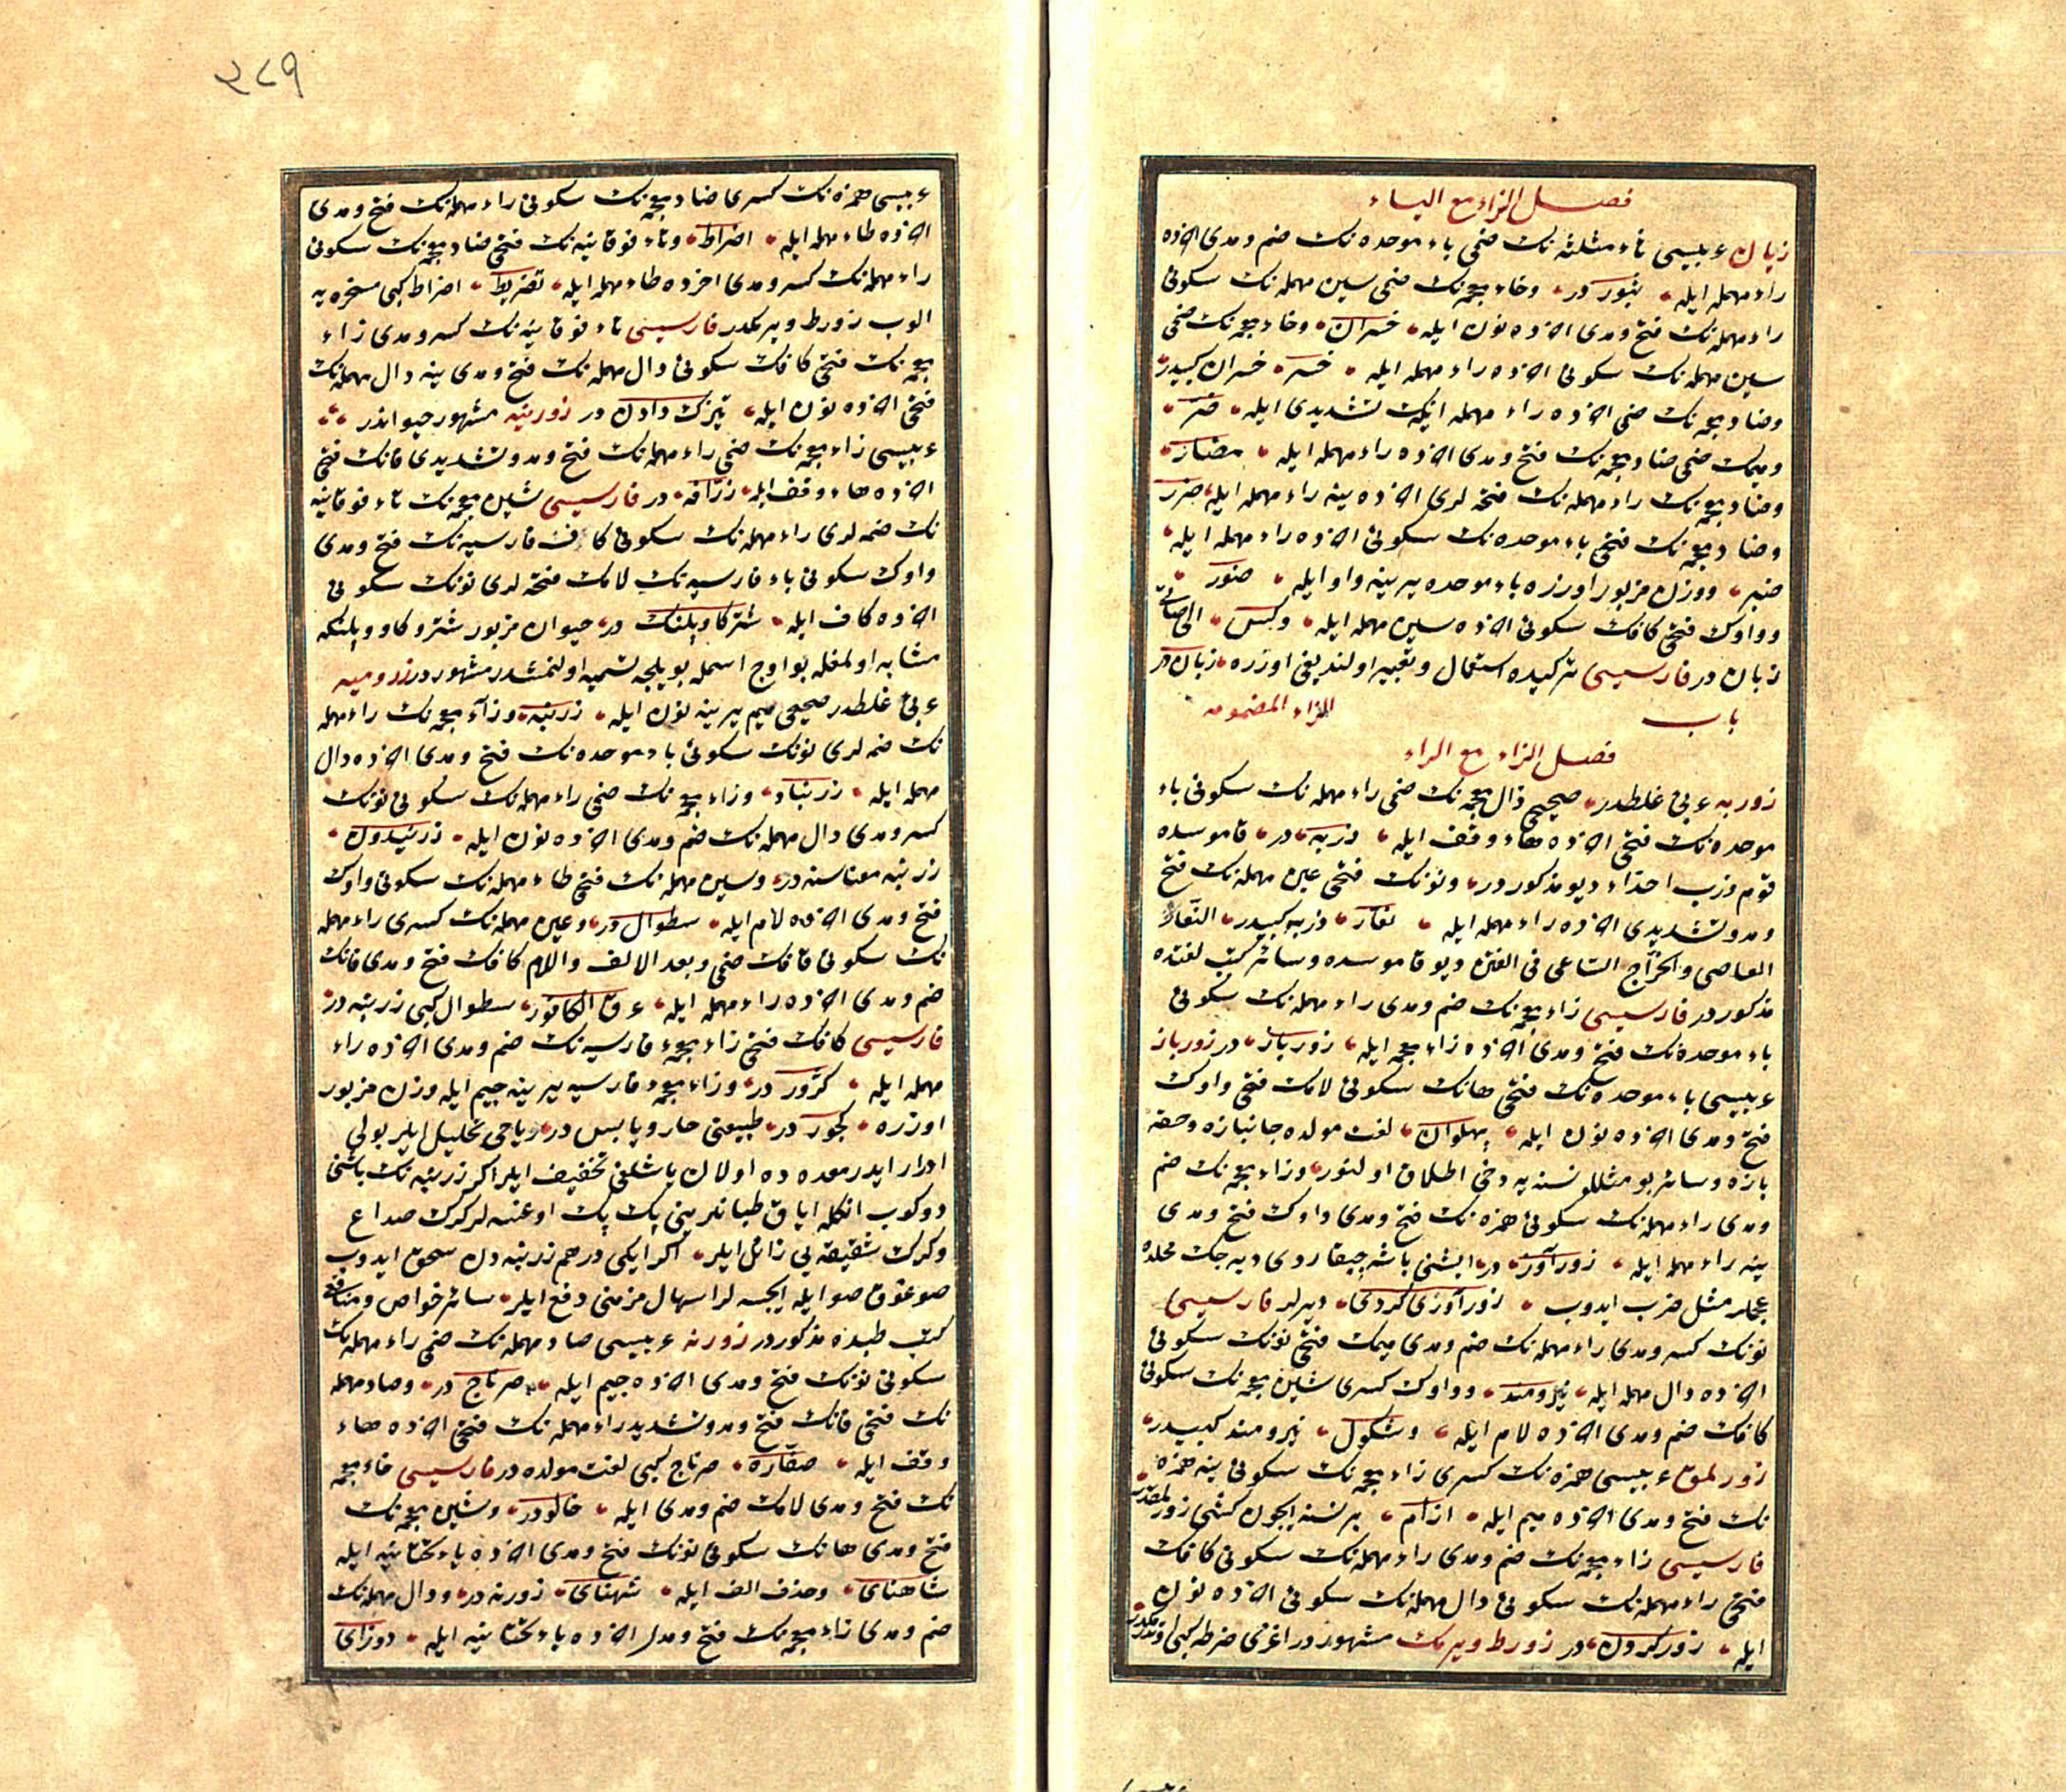 فصل الزاء مع الياء
زيان عربيسى ثاء مثلثه نك ضمى باء موحده نك ضم ومدى اخرده
راء مهمله ايله ثبور در وخاء معجمه نك ضمى سين مهمله نك سكونى
راء مهمله نك فتح ومدى اخرده نون ايله خسران وخاء معجمه نك ضمى
سين مهمله نك سكونى اخرده راء مهمله ايله خسر خسران كبيدر
وضاد معجمه نك ضمى اخرده راء مهمله ايله نك تشديدى ايله ضر
وميمك ضمى ضاد معجمه نك فتح ومدى اخرده راء مهمله ايله مضار
وضاد معجمه نك راء مهمله نك فتحه لرى اخرده ينه راء مهمله ايله ضرر
وضاد معجمه نك فتحى باء موحده نك سكونى اخرده راء مهمله ايله
ضبر ووزن مزبور اوزره باء موحده يرينه واو ايله ضور
وواوك فتحى كافك سكونى اخرده سين مهمله ايله وكس
زيان در فارسيسى تركيده استعمال وتعبير اولنديغى اوزره زيان در
باب الزاء المضمومه
فصل الزاء مع الراء
زوربه عربى غلطدر صحيحى ذال معجمه نك ضمى راء مهمله نك سكونى باء
موحده نك فتحى اخرده هاء وقف ايله ذربه در قاموسده
قوم ذرب احداء ديو مذكور در ونونك فتحى عين مهمله نك فتح
ومد وتشديدى اخرده راء مهمله ايله نعار ذربه كبيدر النعار
العاصى والخراج الساعى فى الفتن ديو قاموسده وسائر كتب لغتده
مذكور در فارسيسى زاء معجمه نك ضم ومدى راء مهمله نك سكونى
باء موحده نك فتح ومدى اخرده زاء معجمه ايله زورباز در زورباز
عربيسى باء موحده نك فتحى هانك سكونى لامك فتحى واوك
فتح ومدى اخرده نون ايله پهلوان لغت مولده جانبازه وحقه
بازه وسائر بو مثللو نسنه يه دخى اطلاق اولنور وزاء معجمه نك ضم
ومدى راء مهمله نك سكونى همزه نك فتح ومدى واوك فتح ومدى
ينه راء مهمله ايله زورآور در ايشنى باشه چيقاردى ديه جك محلده
عجملر مثل ضرب ايدوب زورآورى كردى ديرلر فارسيسى
نونك كسر ومدى راء مهمله نك ضم ومدى ميمك فتحى نونك سكونى
اخرده دال مهمله ايله نيرومند وواوك كسرى شين معجمه نك سكونى
كافك ضم ومدى اخرده لام ايله وشكول نيرومند كبيدر
زورلمق عربيسى همزه نك كسرى زاء معجمه نك سكونى ينه همزه
نك فتح ومدى اخرده ميم ايله ازآم بر نسنه ايچون كشى زورلمقدر
فارسيسى زاء معجمه نك ضم ومدى راء مهمله نك سكونى كافك
فتحى راء مهمله نك سكونى دال مهمله نك سكونى اخرده نون
ايله زوركردن در زورط ويرمك مشهور در اغزى ضرطه كبى
٢٨٩
عربيسى همزه نك كسرى ضاد معجمه نك سكونى راء مهمله نك فتح ومدى
اخرده طاء مهمله ايله اضراط وتاء فوقانيه نك فتحى ضاد معجمه نك سكونى
راء مهمله نك كسر ومدى اخرده طاء مهمله ايله تضريط اضراط كبى مسخره يه
الوب زورط ويرمكدر فارسيسى تاء فوقانيه نك كسر ومدى زاء
معجمه نك فتحى كافك سكونى دال مهمله نك فتح ومدى ينه دال مهمله نك
فتحى اخرده نون ايله تيزك دادن در زورنپه مشهور حيواندر
عربيسى زاء معجمه نك ضمى راء مهمله نك فتح ومد وتشديدى فانك فتحى
اخرده هاء وقف ايله زرافه در فارسيسى شين معجمه نك تاء فوقانيه
نك ضمه لرى راء مهمله نك سكونى كاف فارسيه نك فتح ومدى
واوك سكونى باء فارسيه نك لامك فتحه لرى نونك سكونى
اخرده كاف ايله شترگاوپلنك در حيوان مزبور شتر وكاو وپلنكه
مشابه اولمغله بو اوچ اسمله بويلجه تسميه اولنمشدر مشهور در زرومبه
عربى غلطدر صحيحى ميم يرينه نون ايله زرنبه وزاء معجمه نك راء مهمله
نك ضمه لرى نونك سكونى باء موحده نك فتح ومدى اخرده دال
مهمله ايله زرنباد وزاء معجمه نك ضمى راء مهمله نك سكونى نونك
كسر ومدى دال مهمله نك ضم ومدى اخرده نون ايله زرنيدون
زرنبه معناسنه در وسين مهمله نك فتحى طاء مهمله نك سكونى واوك
فتح ومدى اخرده لام ايله سطوال در وعين مهمله نك كسرى راء مهمله
نك سكونى قافك ضمى وبعد الالف واللام كافك فتح ومدى فانك
ضم ومدى اخرده راء مهمله ايله عرق الكافور سطوال كبى زرنبه در
فارسيسى كافك فتحى زاء معجمه فارسيه نك ضم ومدى اخرده راء
مهمله ايله كژور در وزاء معجمه فارسيه يرينه جيم ايله وزن مزبور
اوزره كجور در طبيعتى حار ويابس در رياحى تحليل ايلر بولى
ادرار ايدر معده ده اولان ياشلغى تخفيف ايلر اكر زرنبه نك باشنى
دوكوب انكله اياق طبانلرينى پك پك اوغسه لر كرك صداع
وكرك شقيقه يى زائل ايلر اكر ايكى درهم زرنبه دن سحق ايدوب
صوغوق صو ايله ايچسه لر اسهال مزمنى دفع ايلر سائر خواص ومنافعى
كتب طبده مذكور در زورنه عربيسى صاد مهمله نك ضمى راء مهمله نك
سكونى نونك فتح ومدى اخرده جيم ايله صرناج در وصاد مهمله
نك فتحى فانك فتح ومد وتشديد راء مهمله نك فتحى اخرده هاء
وقف ايله صفاره صرناج كبى لغت مولده در فارسيسى خاء معجمه
نك فتح ومدى لامك ضم ومدى ايله خالو در وشين معجمه نك
فتح ومدى هانك سكونى نونك فتح ومدى اخرده ياء تحتانيه ايله
شاهناى وحذف الف ايله شهناى زورنه در ودال مهمله نك
ضم ومدى زاء معجمه نك فتح ومدى اخرده ياء تحتانيه ايله دوزاى